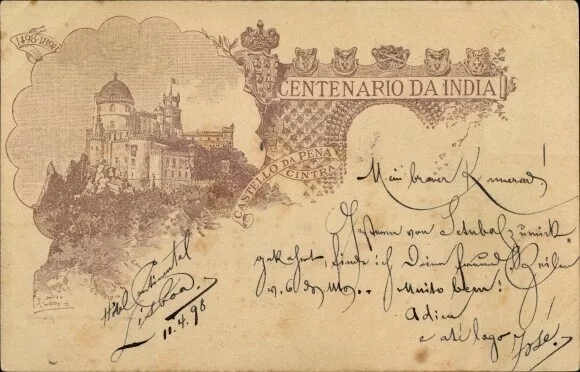 1498-1898
CENTENARIO DA INDIA
CASTELLO DA PENA
CINTRA
Hôtel Continental
Lisboa.
11.4.98
Mein braver Kamerad!
Gestern von Setubal zurück
gekehrt, finde ich Deine freund. Zeilen
v. 6 d. Mo.. Muito bem!
Adieu
e até logo José.